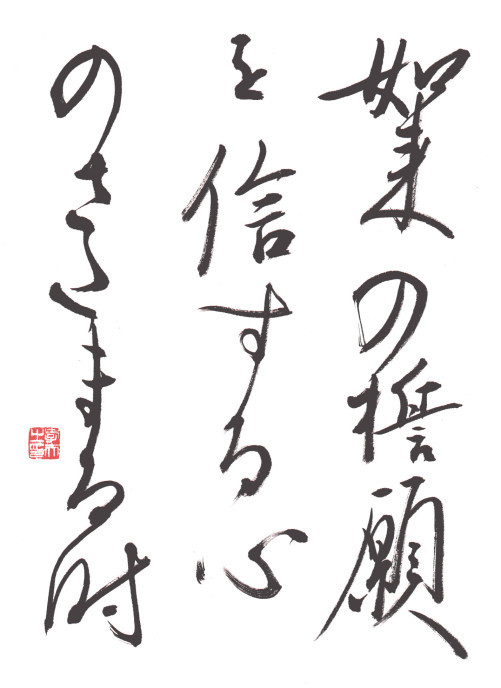 如来の誓願
を信する心
のさたまる時